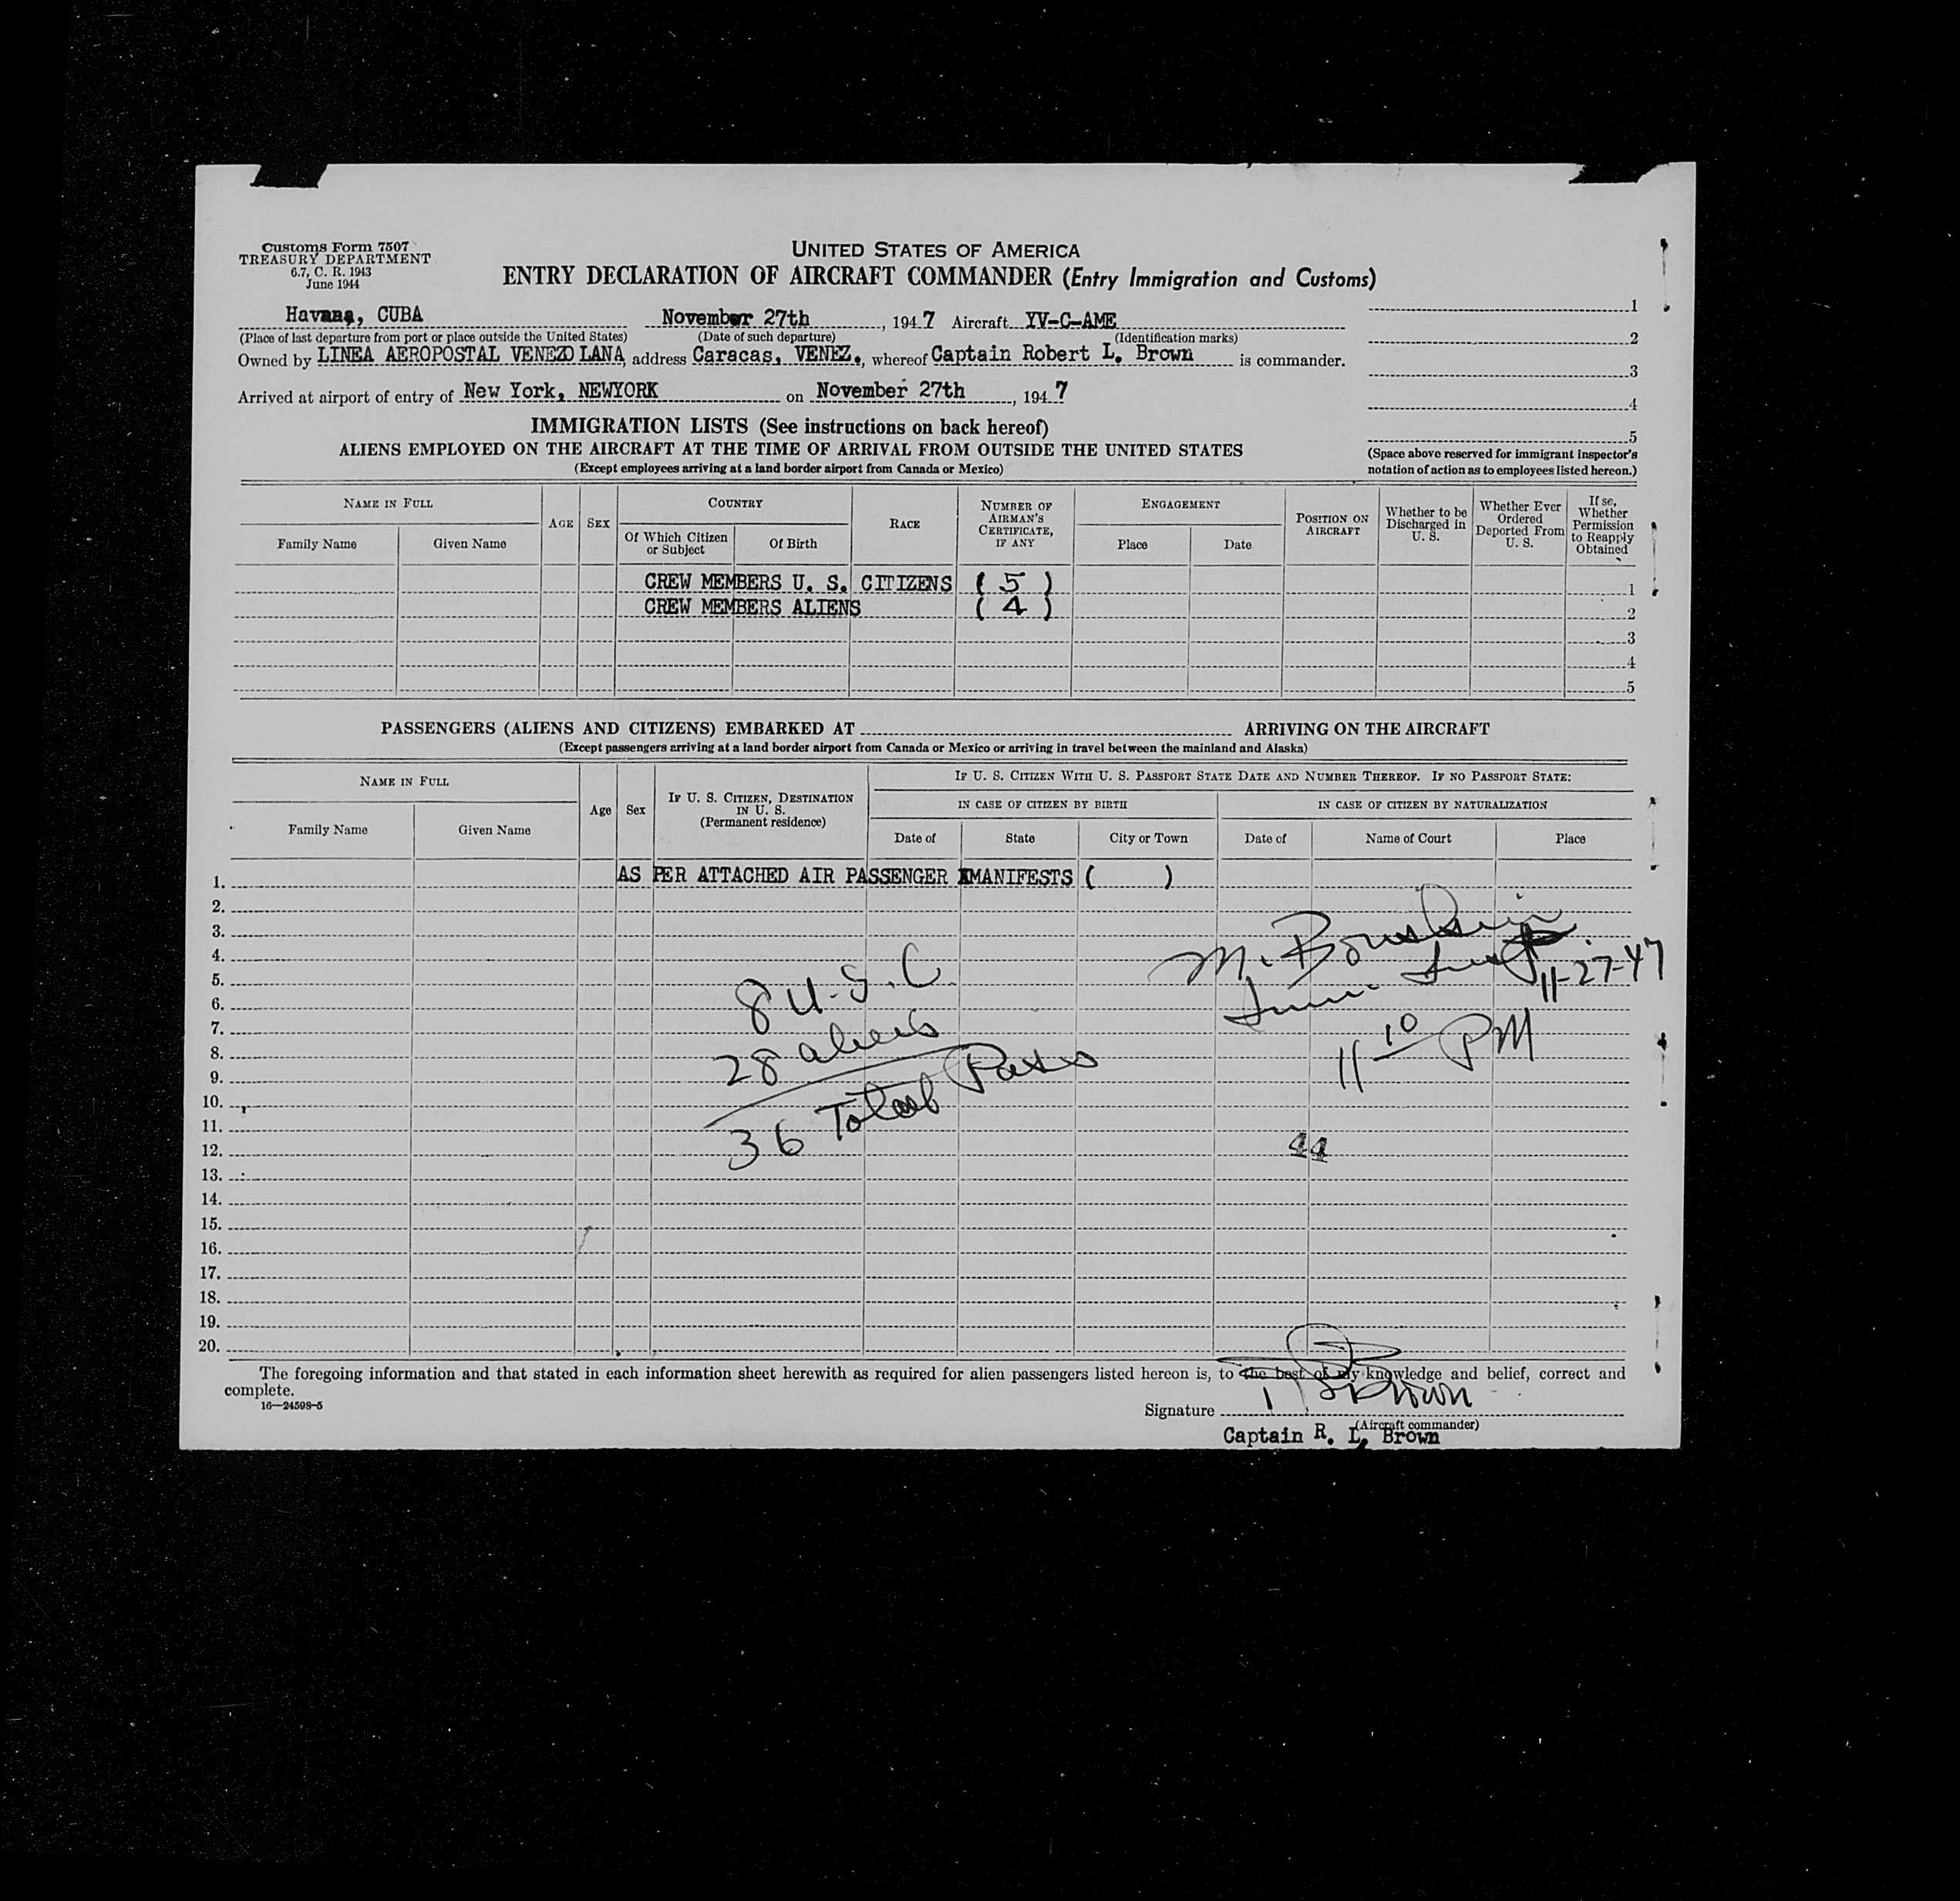 Customs Form 7507
TREASURY DEPARTMENT
6.7, C. R. 1943
June 1944
UNITED STATES OF AMERICA
ENTRY DECLARATION OF AIRCRAFT COMMANDER (Entry Immigration and Customs)
Havana, CUBA November 27th, 1947 Aircraft YV-C-AME
(Place of last departure from port or place outside the United States) (Date of such departure) (Identification marks)
Owned by LINEA AEROPOSTAL VENEZOLANA, address Caracas, VENEZ., whereof Captain Robert L. Brown is commander.
Arrived at airport of entry of New York, NEWYORK on November 27th, 1947
1
2
3
4
5
(Space above reserved for immigrant inspector's
notation of action as to employees listed hereon.)
IMMIGRATION LISTS (See instructions on back hereof)
ALIENS EMPLOYED ON THE AIRCRAFT AT THE TIME OF ARRIVAL FROM OUTSIDE THE UNITED STATES
(Except employees arriving at a land border airport from Canada or Mexico)
NAME IN FULL
Family Name Given Name
AGE
SEX
COUNTRY
Of Which Citizen
or Subject
Of Birth
RACE
NUMBER OF
AIRMAN'S
CERTIFICATE,
IF ANY
ENGAGEMENT
Place Date
POSITION ON
AIRCRAFT
Whether to be
Discharged in
U. S.
Whether Ever
Ordered
Deported From
U. S.
If so,
Whether
Permission
to Reapply
Obtained
CREW MEMBERS U. S. CITIZENS ( 5 ) 1
CREW MEMBERS ALIENS ( 4 ) 2
3
4
5
PASSENGERS (ALIENS AND CITIZENS) EMBARKED AT ARRIVING ON THE AIRCRAFT
(Except passengers arriving at a land border airport from Canada or Mexico or arriving in travel between the mainland and Alaska)
NAME IN FULL
Family Name Given Name
Age
Sex
IF U. S. CITIZEN, DESTINATION
IN U. S.
(Permanent residence)
IF U. S. CITIZEN WITH U. S. PASSPORT STATE DATE AND NUMBER THEREOF. IF NO PASSPORT STATE:
IN CASE OF CITIZEN BY BIRTH IN CASE OF CITIZEN BY NATURALIZATION
Date of State City or Town Date of Name of Court Place
1. AS PER ATTACHED AIR PASSENGER MANIFESTS ( )
2.
3.
4.
5.
6.
7.
8.
9.
10.
11.
12.
13.
14.
15.
16.
17.
18.
19.
20.
8 U.S.C.
28 aliens
36 Total Pass
M.
Imm. Insp. 11-27-47
11 10 PM
44
The foregoing information and that stated in each information sheet herewith as required for alien passengers listed hereon is, to the best of my knowledge and belief, correct and
complete.
16—24598-5
Signature R L Brown
(Aircraft commander)
Captain R. L. Brown